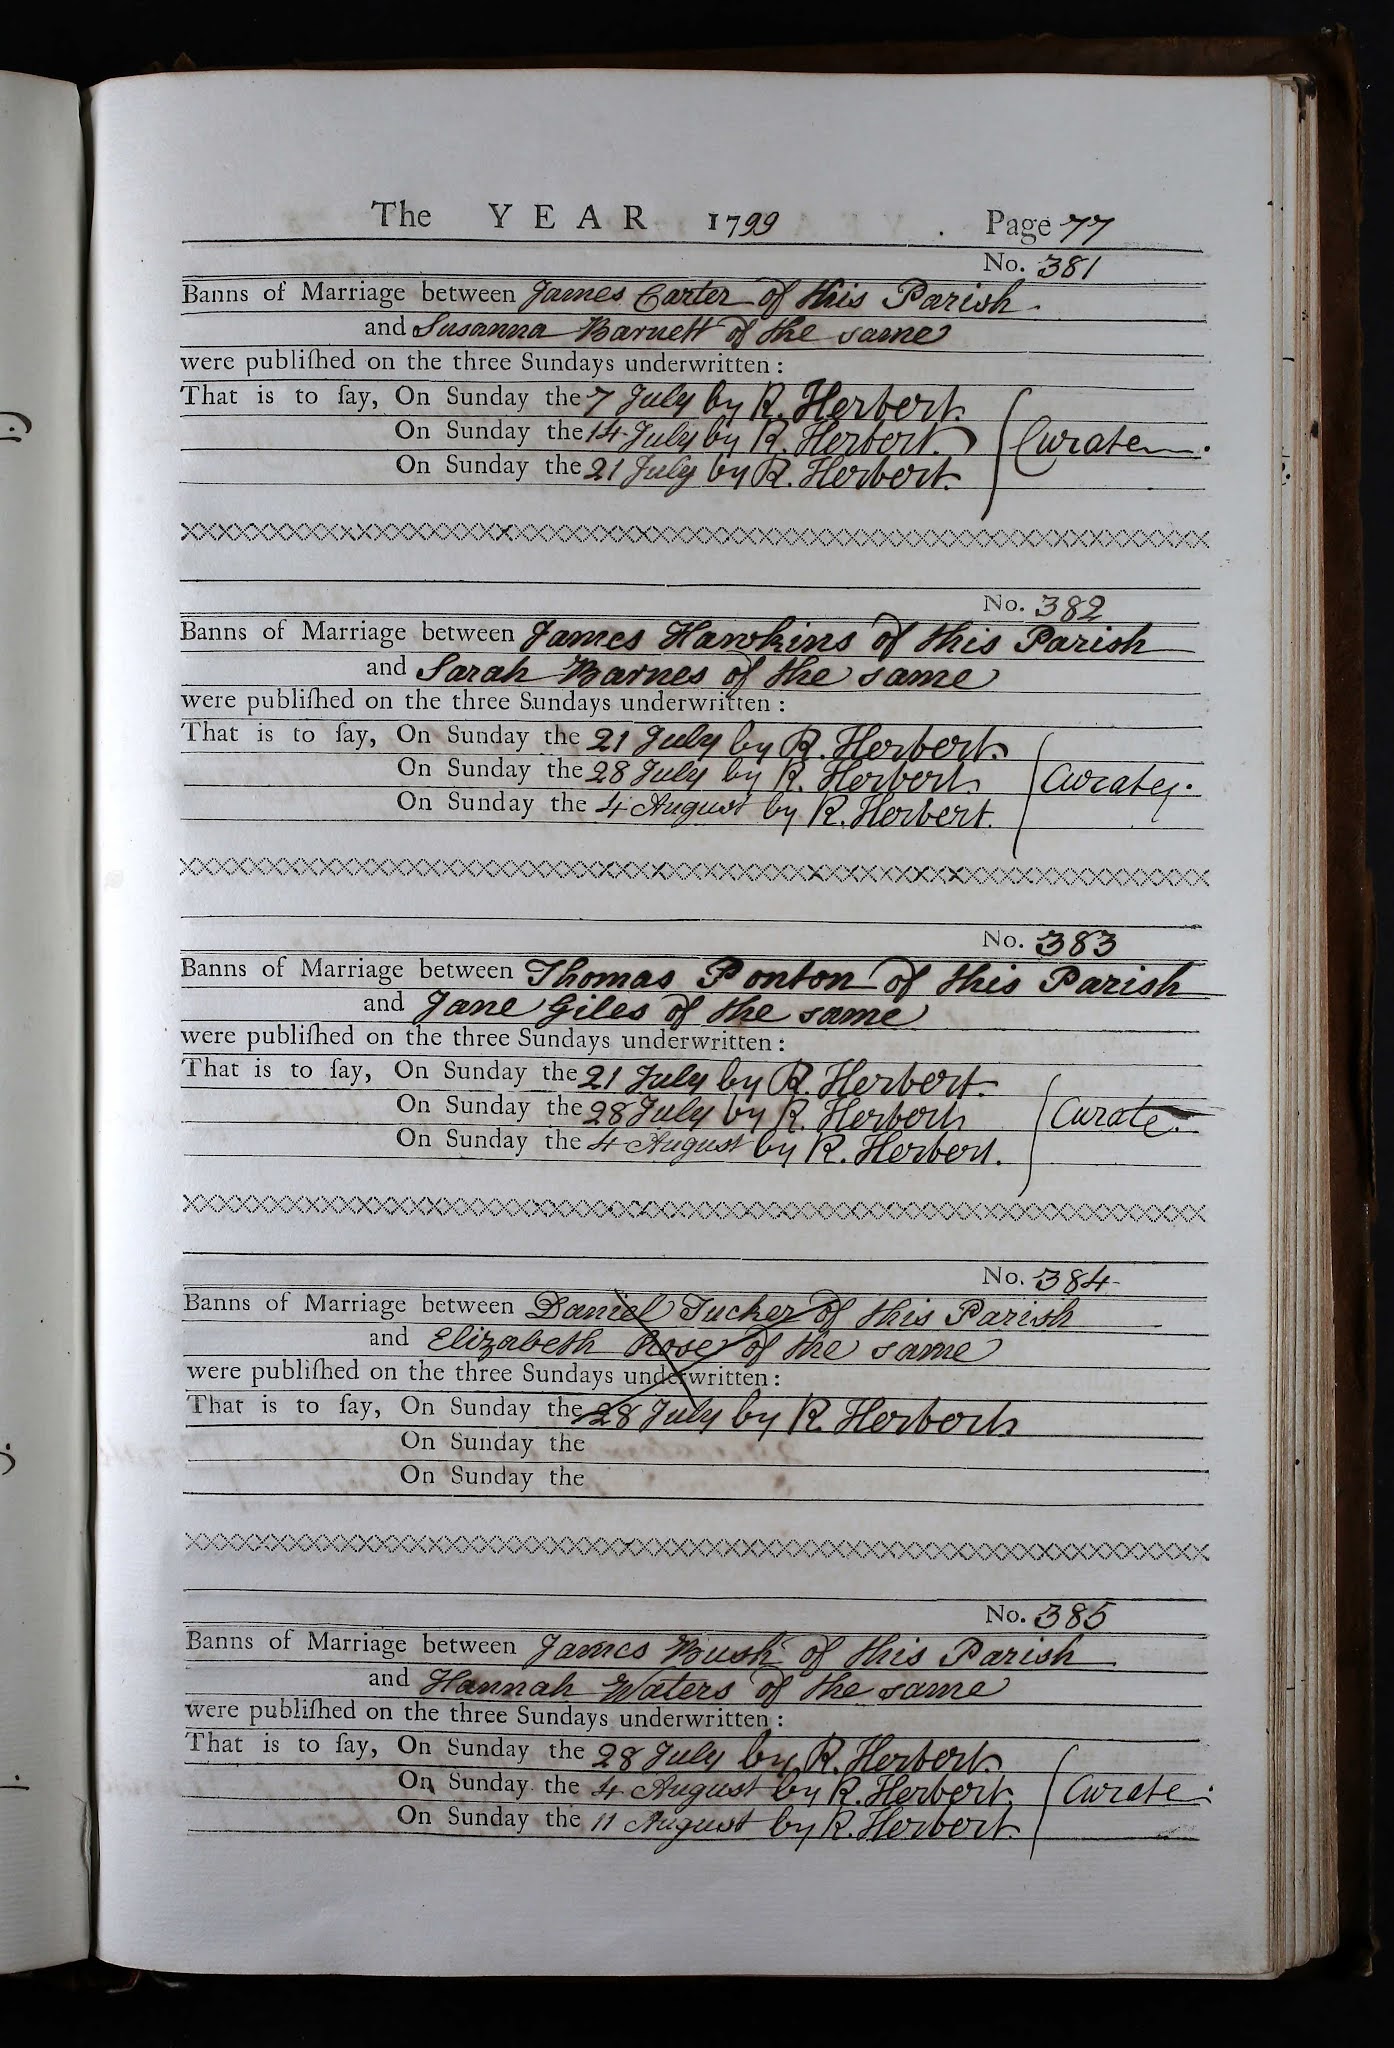 The YEAR 1799 . Page 77
No. 381
Banns of Marriage between James Carter of this Parish
and Susanna Barnett of the same
were publiſhed on the three Sundays underwritten:
That is to ſay, On Sunday the 7 July by R. Herbert.
On Sunday the 14 July by R. Herbert. Curate.
On Sunday the 21 July by R. Herbert.
No. 382
Banns of Marriage between James Hawkins of this Parish
and Sarah Barnes of the same
were publiſhed on the three Sundays underwritten:
That is to ſay, On Sunday the 21 July by R. Herbert.
On Sunday the 28 July by R. Herbert. Curate.
On Sunday the 4 August by R. Herbert.
No. 383
Banns of Marriage between Thomas Ponton of this Parish
and Jane Giles of the same
were publiſhed on the three Sundays underwritten:
That is to ſay, On Sunday the 21 July by R. Herbert.
On Sunday the 28 July by R. Herbert Curate.
On Sunday the 4 August by R. Herbert.
No. 384
Banns of Marriage between Daniel Tucker of this Parish
and Elizabeth Rose of the same
were publiſhed on the three Sundays underwritten:
That is to ſay, On Sunday the 28 July by R. Herbert
On Sunday the
On Sunday the
No. 385
Banns of Marriage between James Bush of this Parish
and Hannah Waters of the same
were publiſhed on the three Sundays underwritten:
That is to ſay, On Sunday the 28 July by R. Herbert.
On Sunday the 4 August by R. Herbert. Curate.
On Sunday the 11 August by R. Herbert.